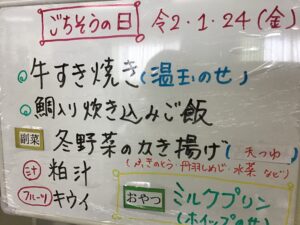 ごちそうの日 令2・1・24(金)
牛すき焼き(温玉のせ)
鯛入り炊き込みご飯
副菜 冬野菜のかき揚げ(天つゆ)
丹羽しめじ・水菜 など)
汁 粕汁
フルーツ キウイ
おやつ ミルクプリン
(ホイップのせ)